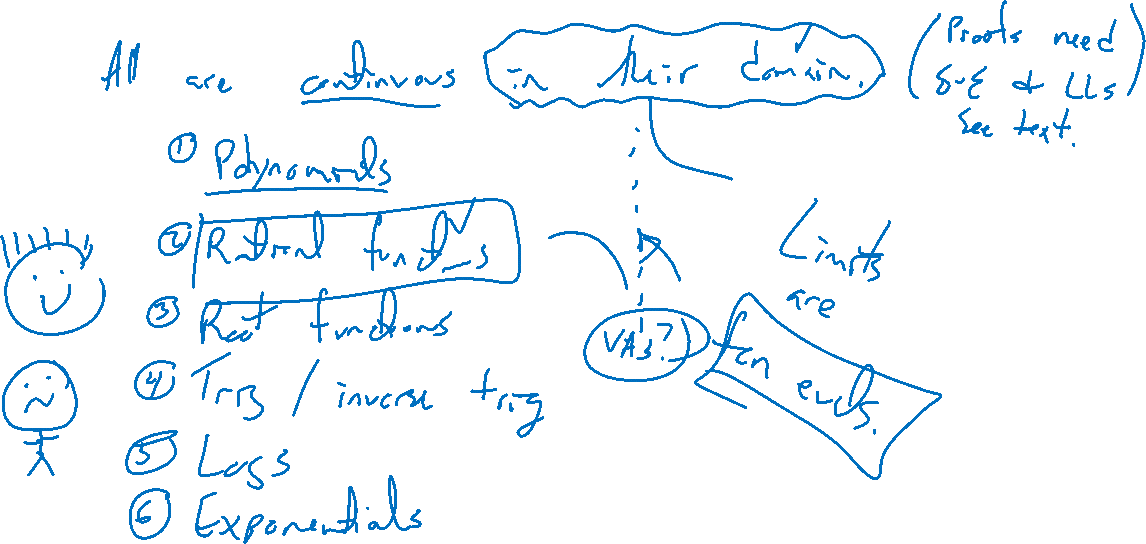 All are continuous in their domain.
(Proofs need
δ-ε & LLs
See text.)
① Polynomials
② Rational functions
③ Root functions
④ Trig / inverse trig
⑤ Logs
⑥ Exponentials
VAs?
Limits
are
fcn ends.